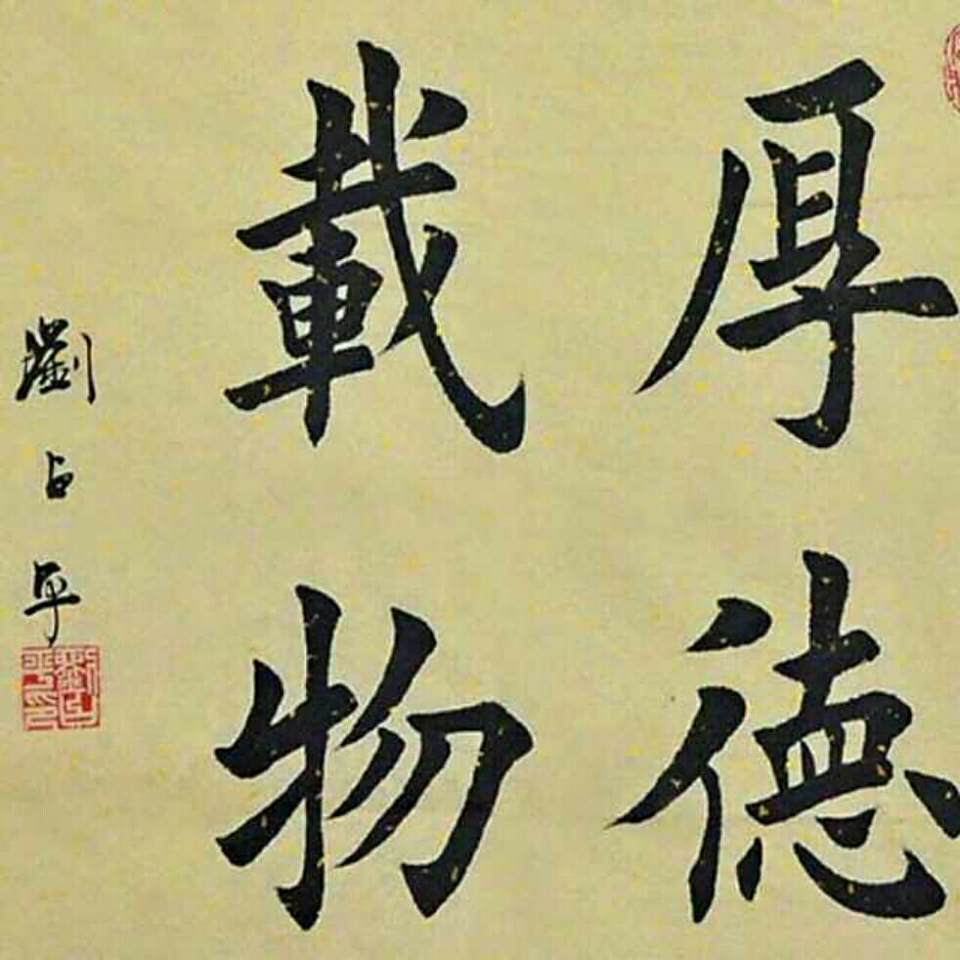 厚德
載物
劉占平